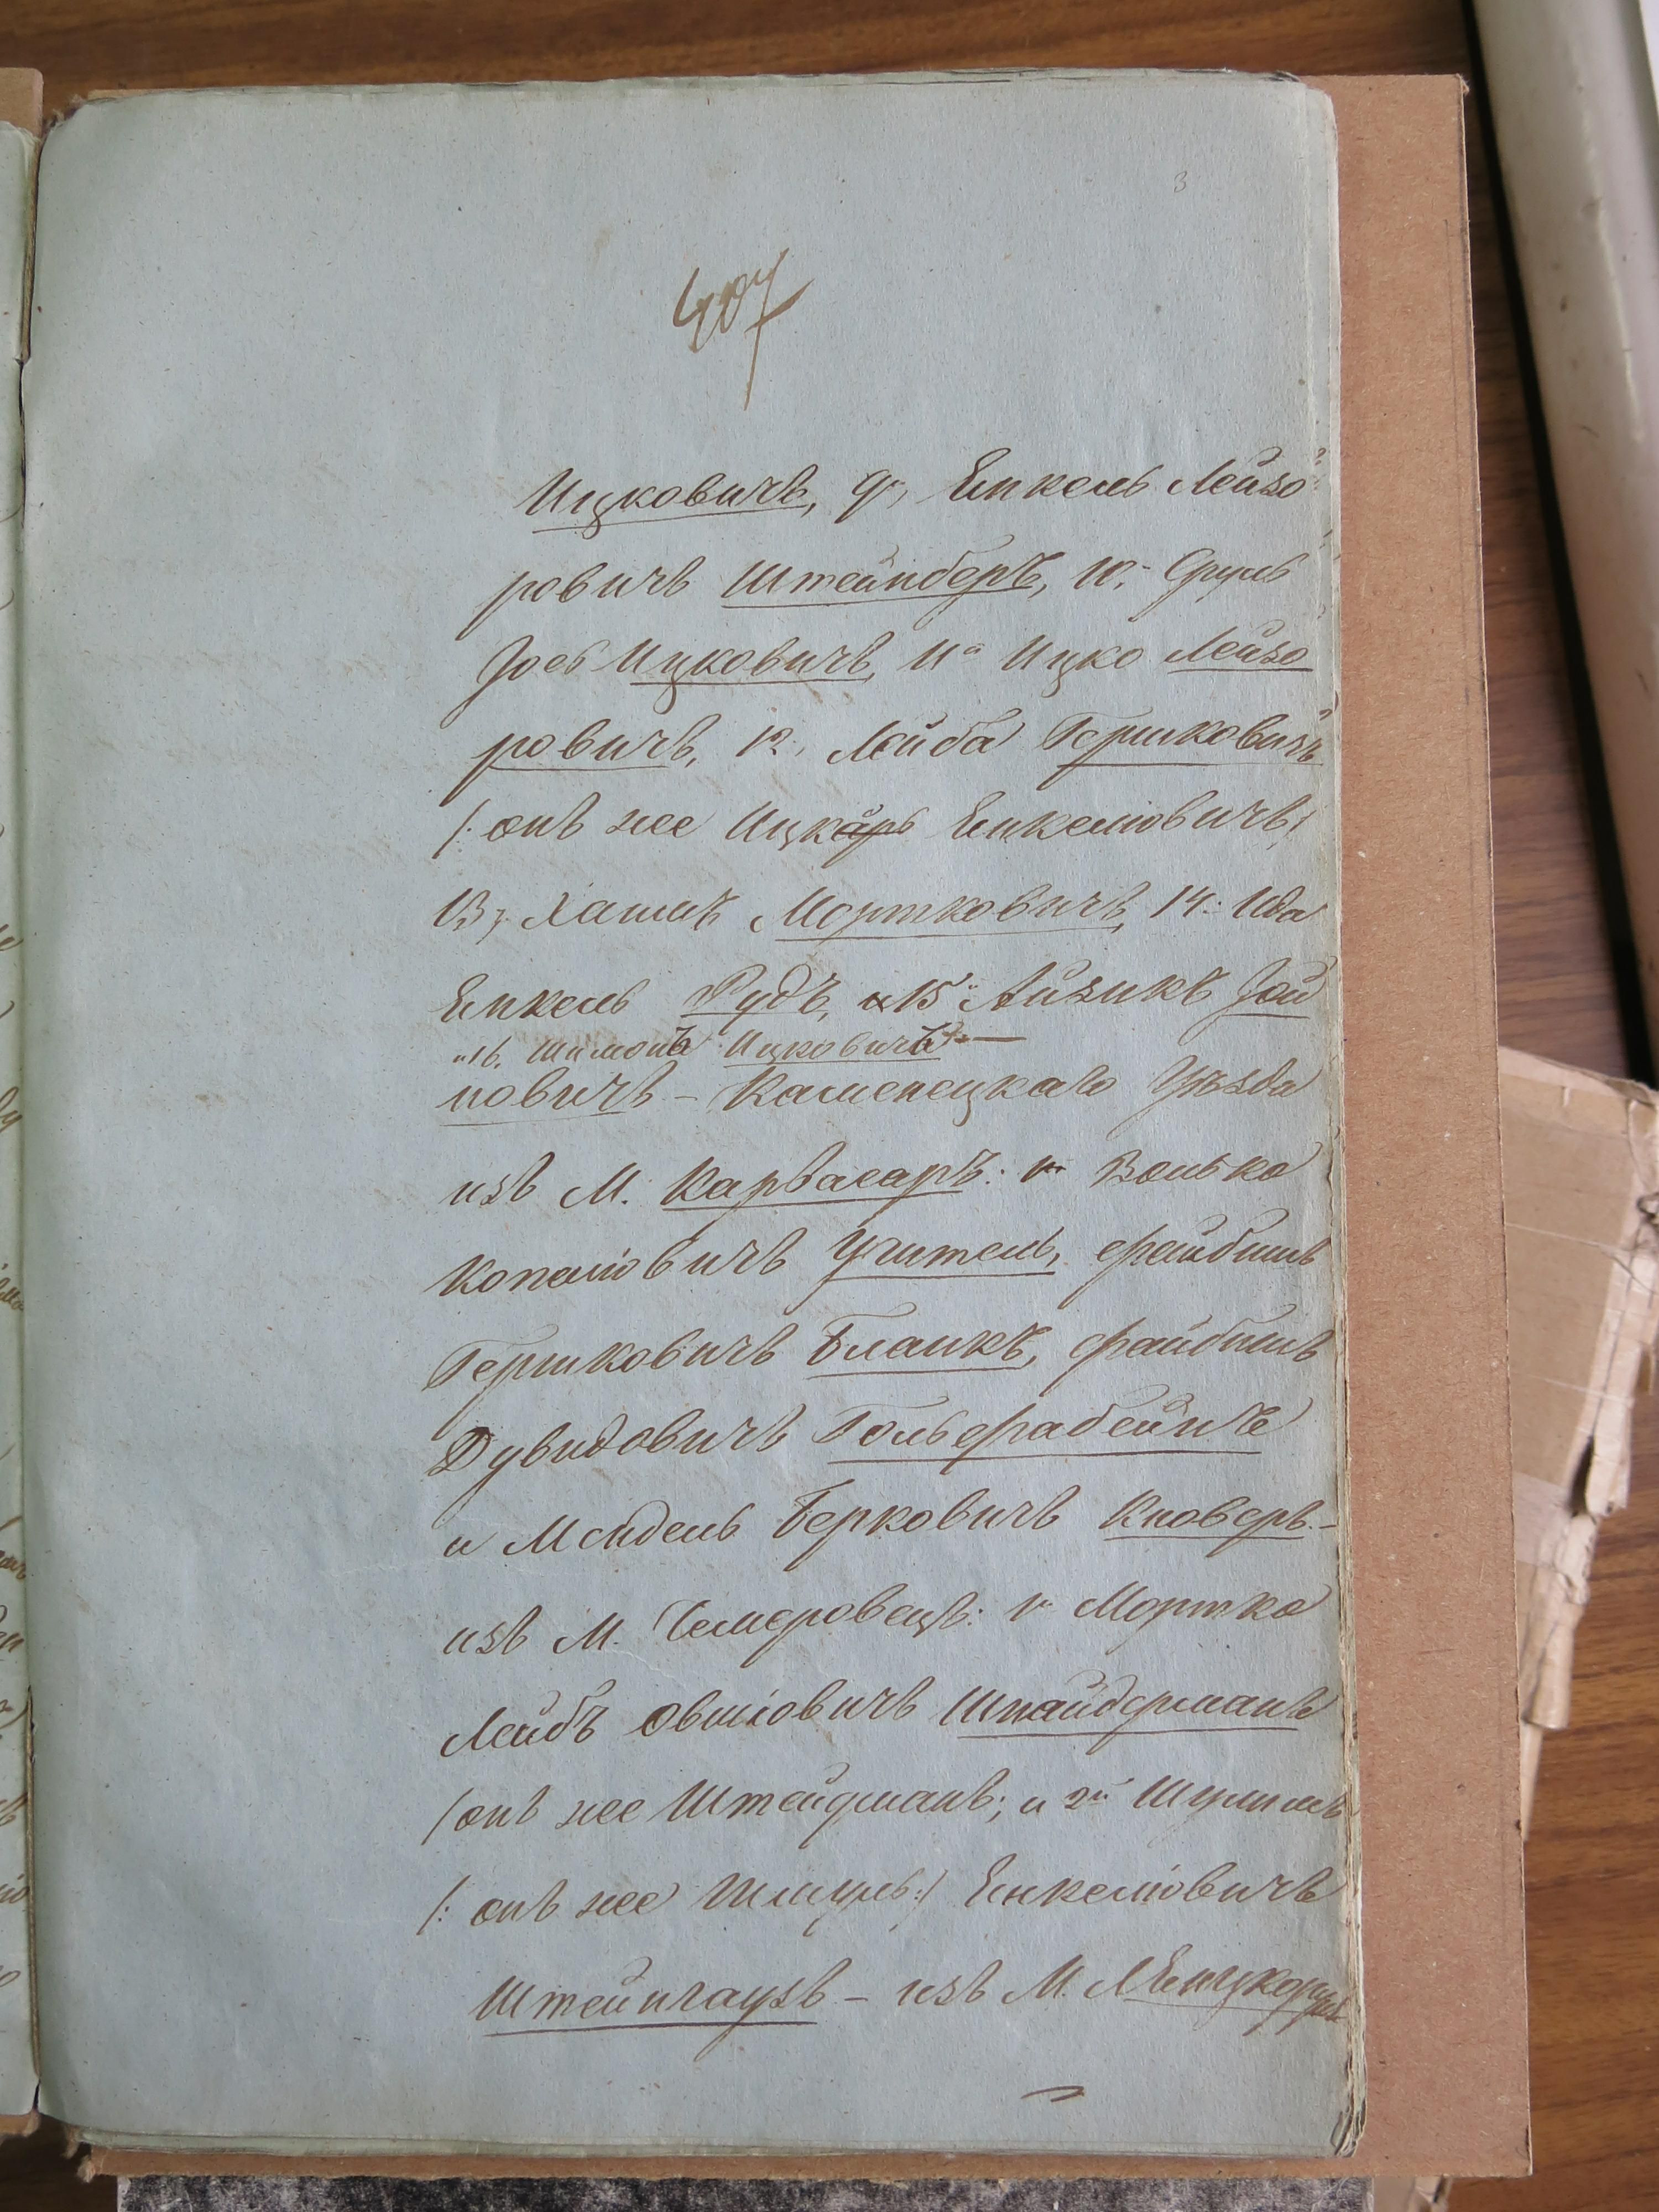 3
407
Ицковичъ, 9, Енкель Лейзо
ровичъ Штейнберъ, 10, Сруль
Іосъ Ицковичъ, 11й Ицко Лейзо
ровичъ, 12, Лейба Гершковичъ
/: онъ же Ицкарь Енкелювичъ,/
13, Хаимъ Мортковичъ, 14: Ида
Енкель Рудъ, 15 Айзикъ Іой
16. Шимонъ Ицковичъ —
новичъ – Каменецкаго Уѣзда
изъ М. Карвасаръ: Волько
Копелювичъ Учитель, Файбишъ
Гершковичъ Бланкъ, Файбишъ
Дувидовичъ Гольфрабейнъ
и Мендель Берковичъ Кноверъ. –
изъ М. Чемеровецъ: Мортко
Лейбъ Овшіовичъ Шнайдерманъ
/онъ же Штейдманъ; и 2й Шулимъ
/: онъ же Шмуль:/ Енкелювичъ
Штейнгаузъ – изъ М.